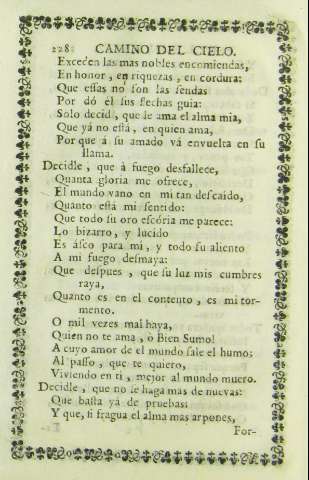 228 CAMINO DEL CIELO.
Exceden las mas nobles encomiendas,
En honor, en riquezas, en cordura:
Que essas no son las sendas
Por dó él sus flechas guia:
Solo decid, que le ama el alma mia,
Que yá no está, en quien ama,
Por que á su amado vá envuelta en su
llama.
Decidle, que á fuego desfallece,
Quanta gloria me ofrece,
El mundo vano en mi tan descaido,
Quanto está mi sentido:
Que todo su oro escória me parece:
Lo bizarro, y lucido
Es ásco para mi, y todo su aliento
A mi fuego desmaya:
Que despues, que su luz mis cumbres
raya,
Quanto es en el contento, es mi tor-
mento.
O mil vezes mal haya,
Quien no te ama, ò Bien Sumo!
A cuyo amor de el mundo sale el humo:
Al passo, que te quiero,
Viviendo en ti, mejor al mundo muero.
Decidle, que no se haga mas de nuevas:
Que basta yá de pruebas:
Y que, si fragua el alma mas arpones,
For-